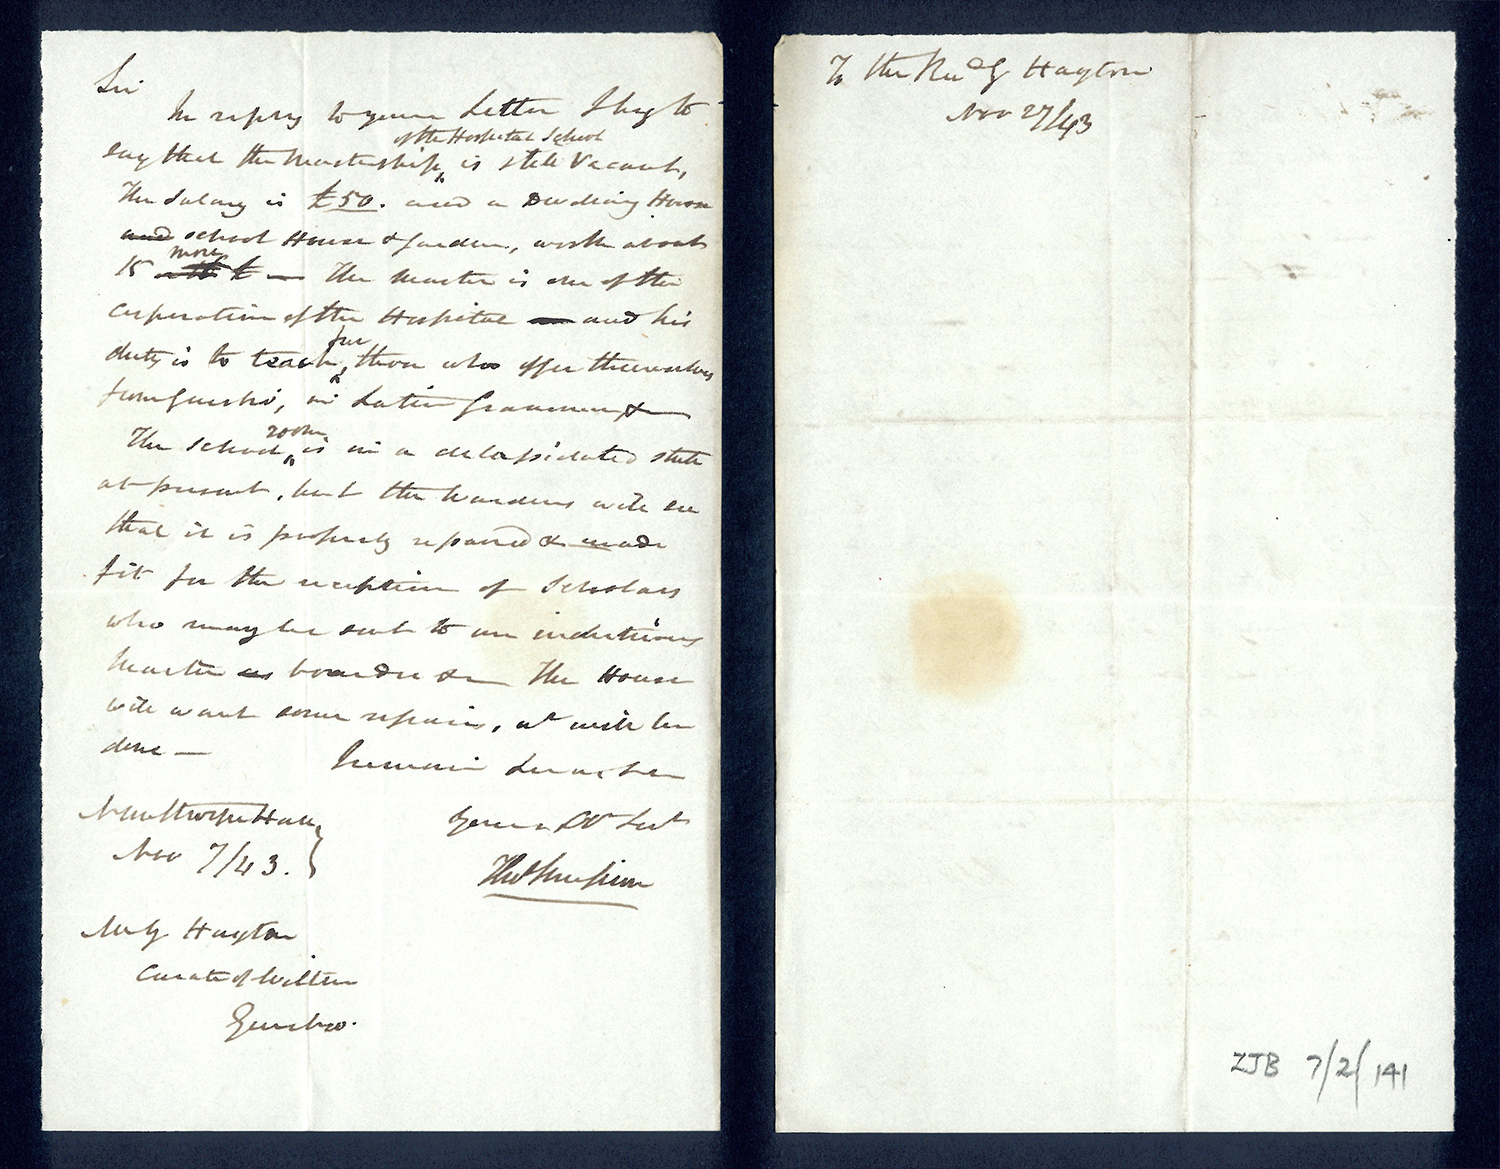 Sir
In reply to your Letter I beg to
of the Hospital School
say that the Mastership is still Vacant,
The Salary is £50. and a Dwelling House
and school House & Garden, worth about
more
15 The Master is one of the
corporation of the Hospital and his
free
duty is to teach, those who offer themselves
from Guisbro, in Latin Grammar &
room
The School is in a delapidated state
at present, but the Wardens will see
that it is properly repaired & made
fit for the reception of Scholars
who may be sent to an industrious
Master as boarders &c The House
will want some repairs, wh will be
done —
I remain Dear Sir
Nunthorpe Hall
Yours Obt Servt
Nov 7/43.
Thos Simpson
Mr G Hayton
Curate of Wilton
Guisbro.
To the Revd G Hayton
Nov 27/43
ZJB 7/2/141